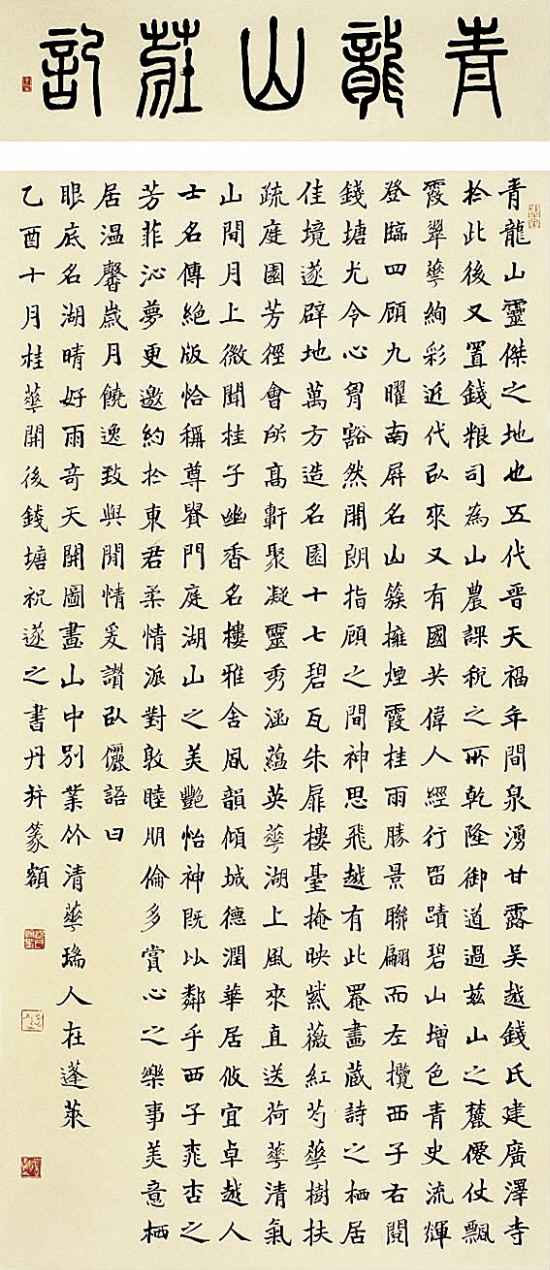 青龍山莊記
青龍山靈傑之地也五代晉天福年間泉湧甘露吳越錢氏建廣澤寺
於此後又置錢粮司為山農課税之所乾隆御道過茲山之麓僊仗飄
霞翠華絢彩近代以來又有國共偉人經行留蹟碧山增色青史流輝
登臨四顧九曜南屏名山簇擁煙霞桂雨勝景聯翩而左攬西子右閱
錢塘尤令心胷豁然開朗指顧之間神思飛越有此罨畫藏詩之栖居
佳境遂辟地萬方造名園十七碧瓦朱扉樓臺掩映紫薇紅芍華樹扶
疏庭園芳徑會所高軒聚凝靈秀涵蘊英華湖上風來直送荷華清氣
山間月上微聞桂子幽香名樓雅舍風韻傾城德潤華居攸宜卓越人
士名傳絕版恰稱尊貴門庭湖山之美艷怡神既以鄰乎西子窕杳之
芳菲沁夢更邀約於東君柔情派對敦睦朋倫多賞心之樂事美意栖
居温馨歲月饒逸致與閒情爰讚以儷語曰
眼底名湖晴好雨奇天開圖畫山中別業竹清華瑞人在蓬萊
乙酉十月桂華開後錢塘祝遂之書丹并篆額